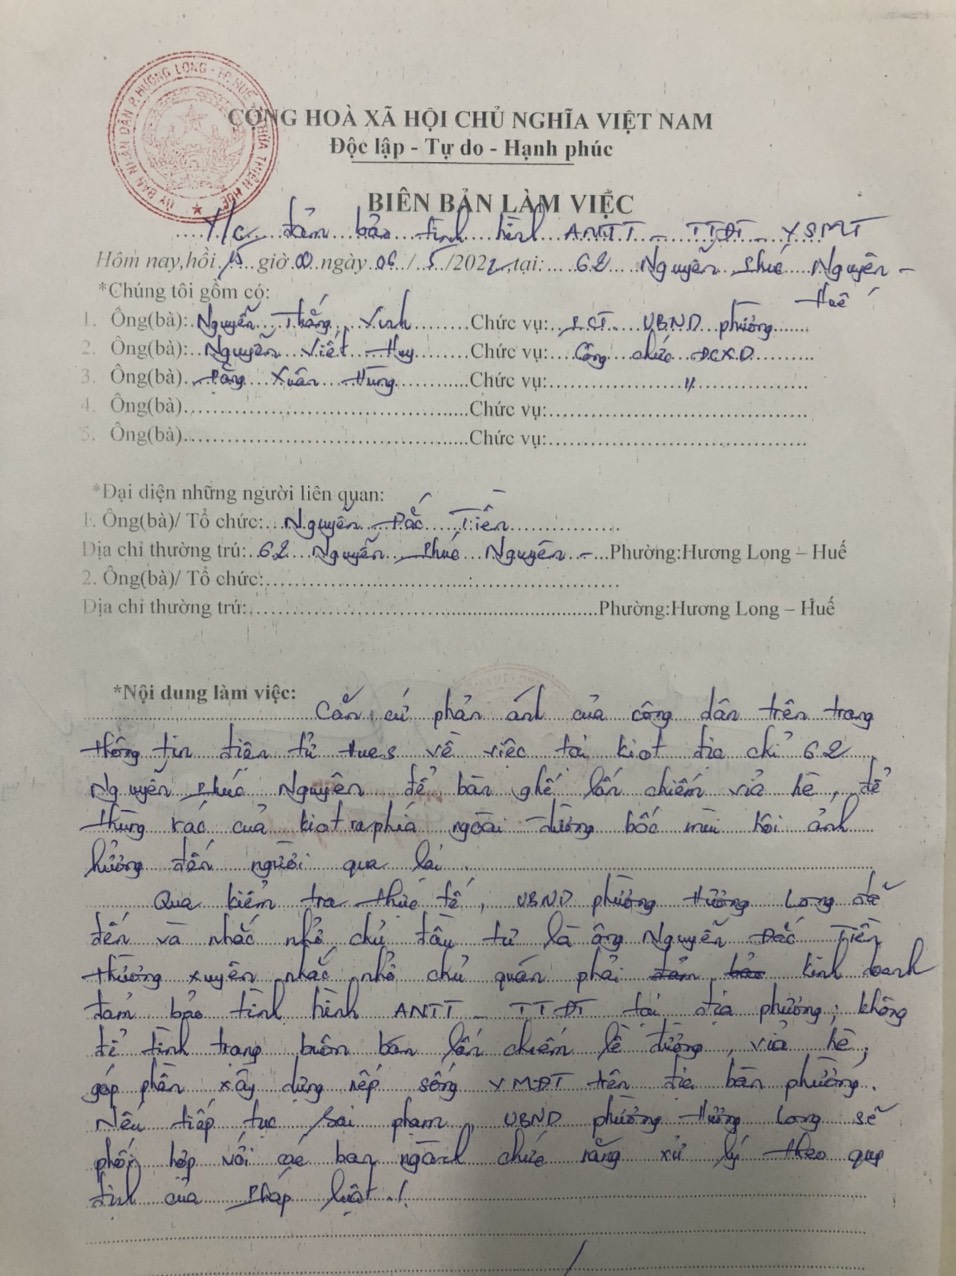 ỦY BAN NHÂN DÂN P.HƯƠNG LONG - TP.HUẾ THỪA THIÊN HUẾ
CỘNG HOÀ XÃ HỘI CHỦ NGHĨA VIỆT NAM
Độc lập - Tự do - Hạnh phúc
BIÊN BẢN LÀM VIỆC
Y/c đảm bảo tình hình ANTT - TTĐT - VSMT
Hôm nay, hồi 15 giờ 00 ngày 06/5/2022 tại: 62 Nguyễn Phúc Nguyên -
Huế
*Chúng tôi gồm có:
1. Ông(bà): Nguyễn Thắng Vinh Chức vụ: PCT UBND phường
2. Ông(bà): Nguyễn Viết Huy Chức vụ: Công chức ĐCXD
3. Ông(bà) Đặng Xuân Hùng Chức vụ: "
4. Ông(bà) Chức vụ:
5. Ông(bà) Chức vụ:
*Đại diện những người liên quan:
1. Ông(bà)/ Tổ chức: Nguyễn Đắc Tiền
Địa chỉ thường trú: 62 Nguyễn Phúc Nguyên - Phường:Hương Long – Huế
2. Ông(bà)/ Tổ chức:
Địa chỉ thường trú: Phường:Hương Long – Huế
*Nội dung làm việc: Căn cứ phản ánh của công dân trên trang
thông tin điện tử Hues về việc tại kiot địa chỉ 62
Nguyễn Phúc Nguyên để bàn ghế lấn chiếm vỉa hè, để
thùng rác của kiot ra phía ngoài đường bốc mùi hôi ảnh
hưởng đến người qua lại.
Qua kiểm tra thực tế, UBND phường Hương Long đã
đến và nhắc nhở chủ đầu tư là ông Nguyễn Đắc Tiền
thường xuyên nhắc nhở chủ quán phải đảm bảo kinh doanh
đảm bảo tình hình ANTT - TTĐT tại địa phương; không
để tình trạng buôn bán lấn chiếm lề đường, vỉa hè,
góp phần xây dựng nếp sống VMĐT trên địa bàn phường.
Nếu tiếp tục sai phạm, UBND phường Hương Long sẽ
phối hợp với các ban ngành chức năng xử lý theo quy
định của Pháp luật ./